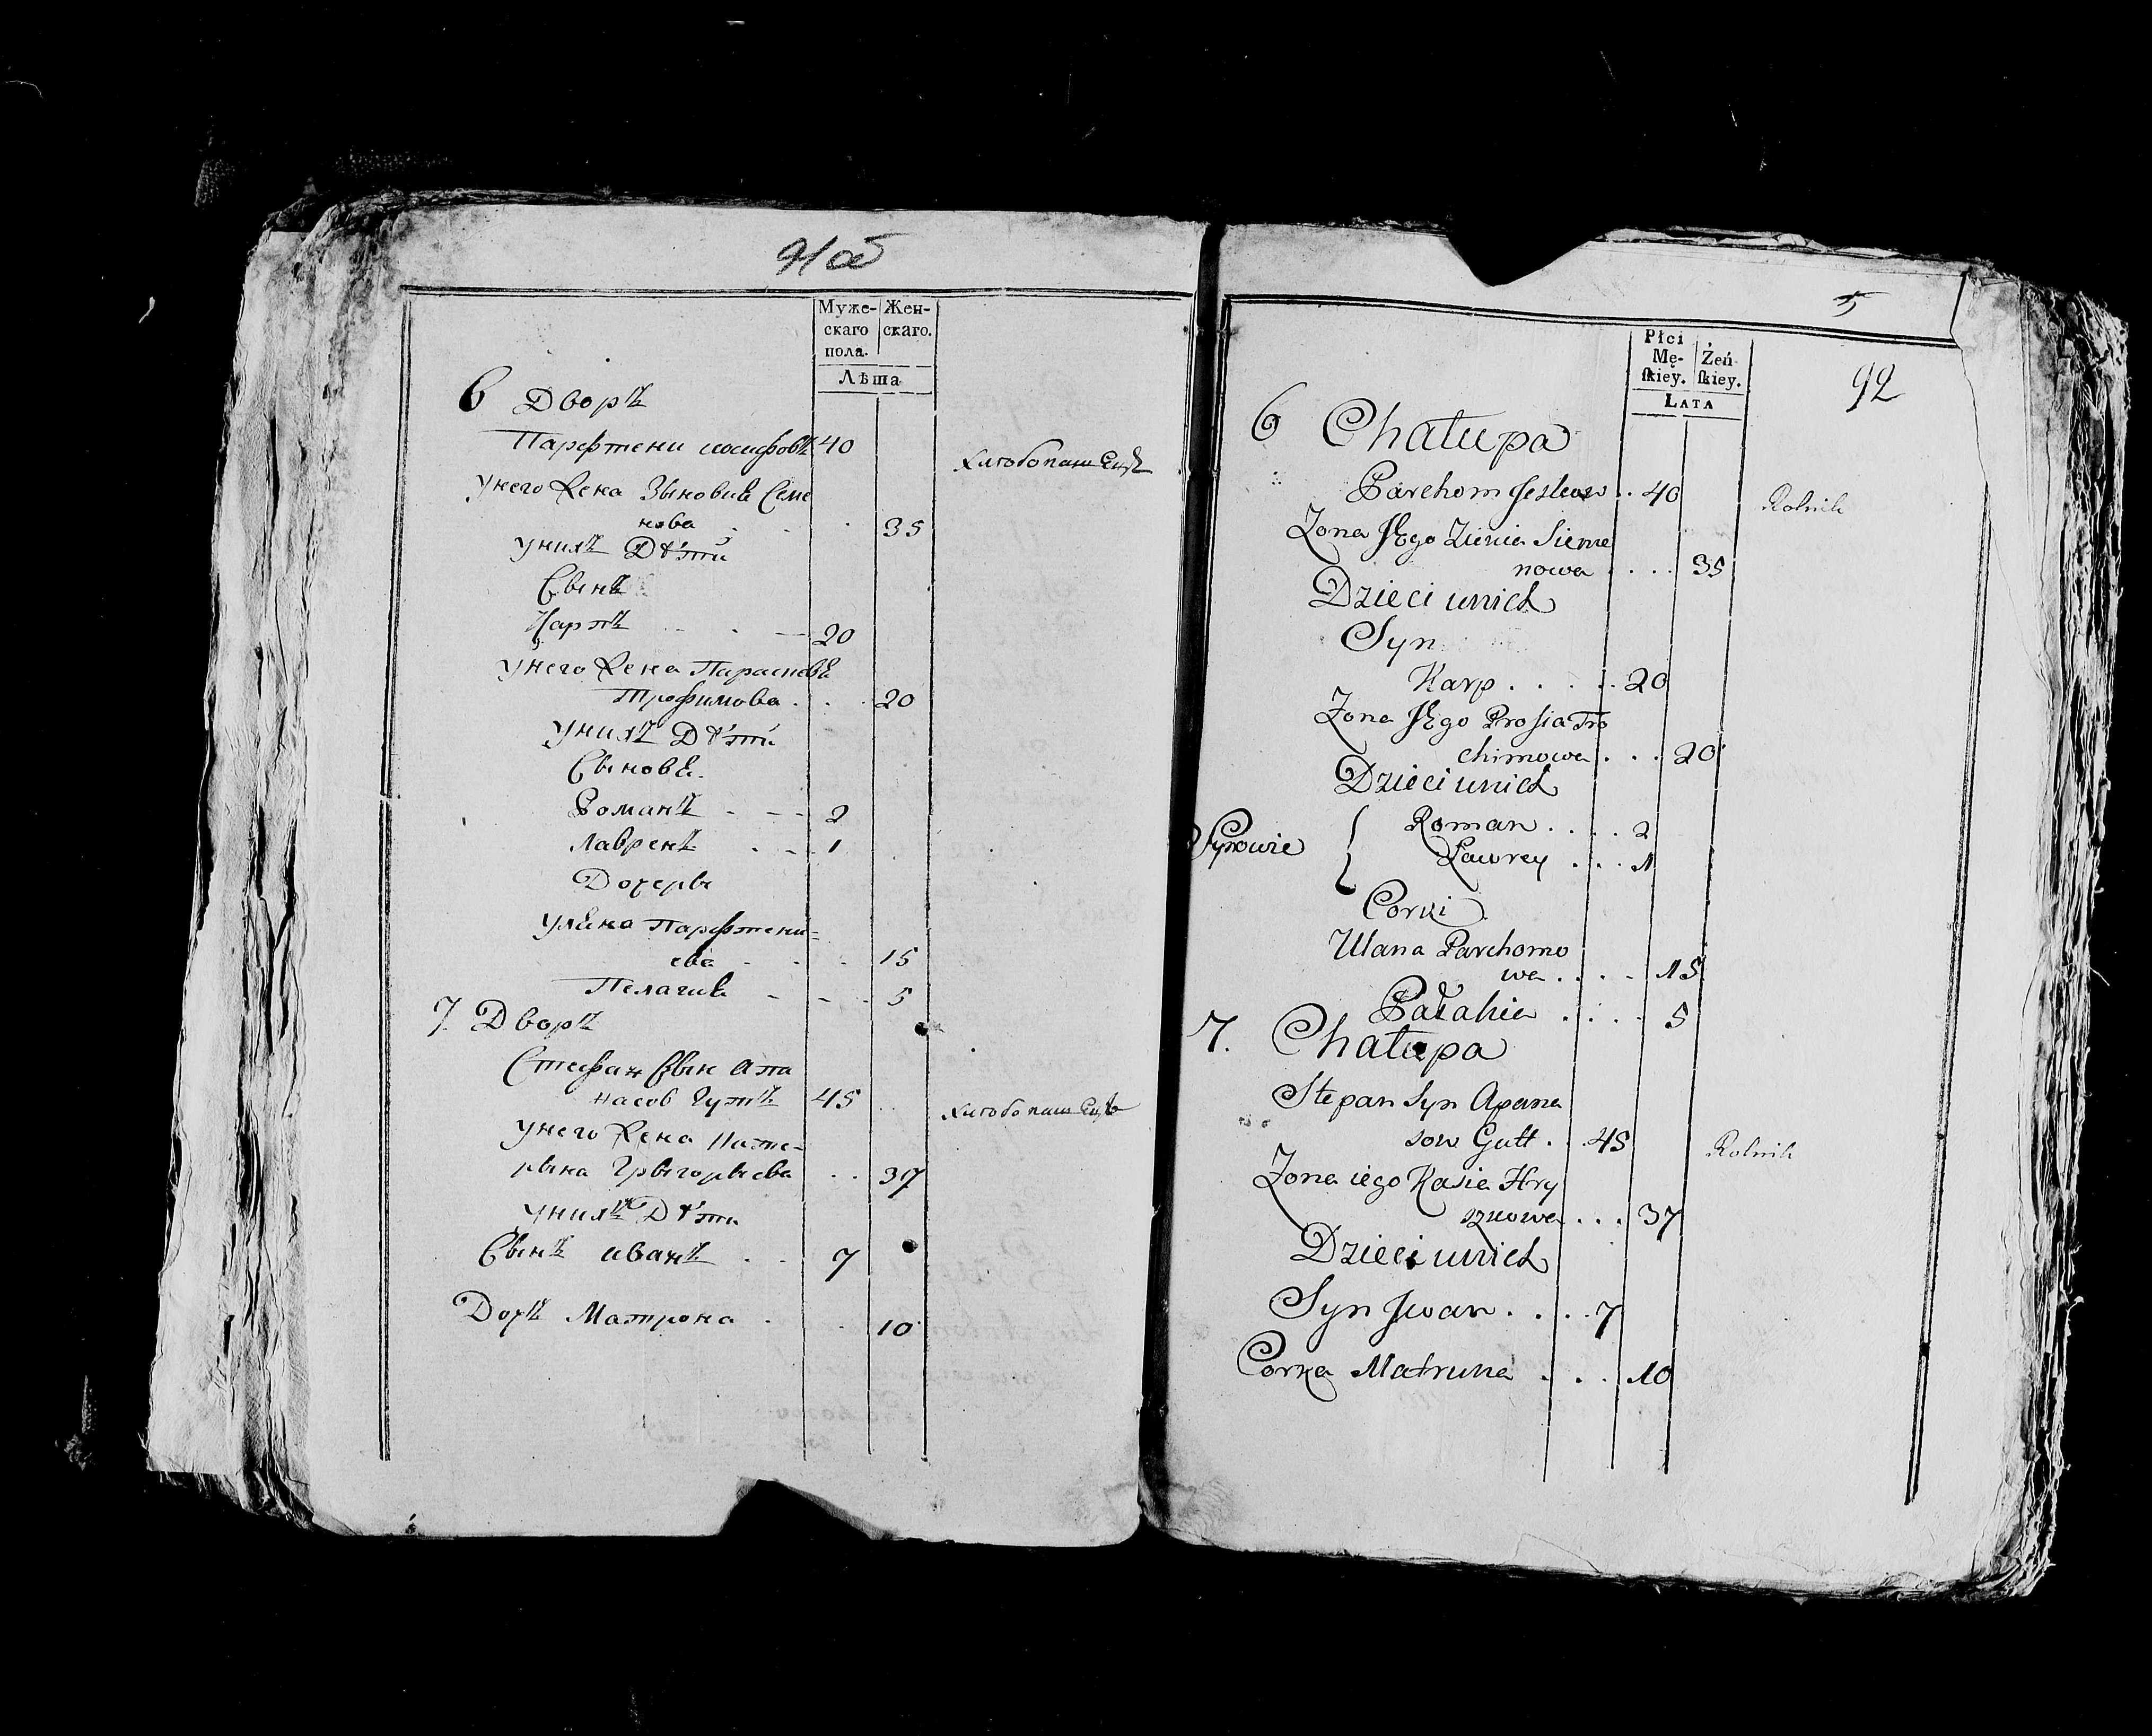 Муже-
скаго
пола.
Жен-
скаго.
Лѣта
6 Дворъ
Парфтени иосифовъ 40
хлѣбопашецъ
унего жена Зѣновиѣ Семе
нова . . . 35
унихъ Дѣти
Сынъ
Карпъ - . - 20
унего жена Параскевѣ
Трофимова . . . 20
унихъ Дѣти
Сыновѣ
Романъ - - - 2
Лаврен . - 1
Дочеры
улѣна Парфтени=
ева - . . 15
Пелагиѣ - - . 5
7 Дворъ
Стефан Сын Апа
насов Гутъ 45
хлѣбопашецъ
унего жена Кате-
рына Грыгорыева . . 37
унихъ Дѣти
Сынъ иванъ . . 7
Дочъ Матрона . . 10
5
92
Płci
Mę-
ſkiey.
Żeń
ſkiey.
Lata
6 Chatupa
Parchom . . 40
Rolnik
Zona JEgo Zienia Sieme
nowa . . . . 35
Dzieci unich
Syn
Karp . . . . . 20
Zona JEgo Prosia Tro
chimowa . . . 20
Dzieci unich
Synowie { Roman . . . . 2
Ławrey . . . . 1
Corki
Ulana Parchomo
wa . . . . 15
Pałahia . . . . 5
7. Chatupa
Stepan Syn Apana
sow Gutt . . . 45
Rolnik
Zona iego Kasia Hry
szkowa . . . 37
Dzieci unich
Syn Jwan . . . . 7
Corka Matruna . . . 10